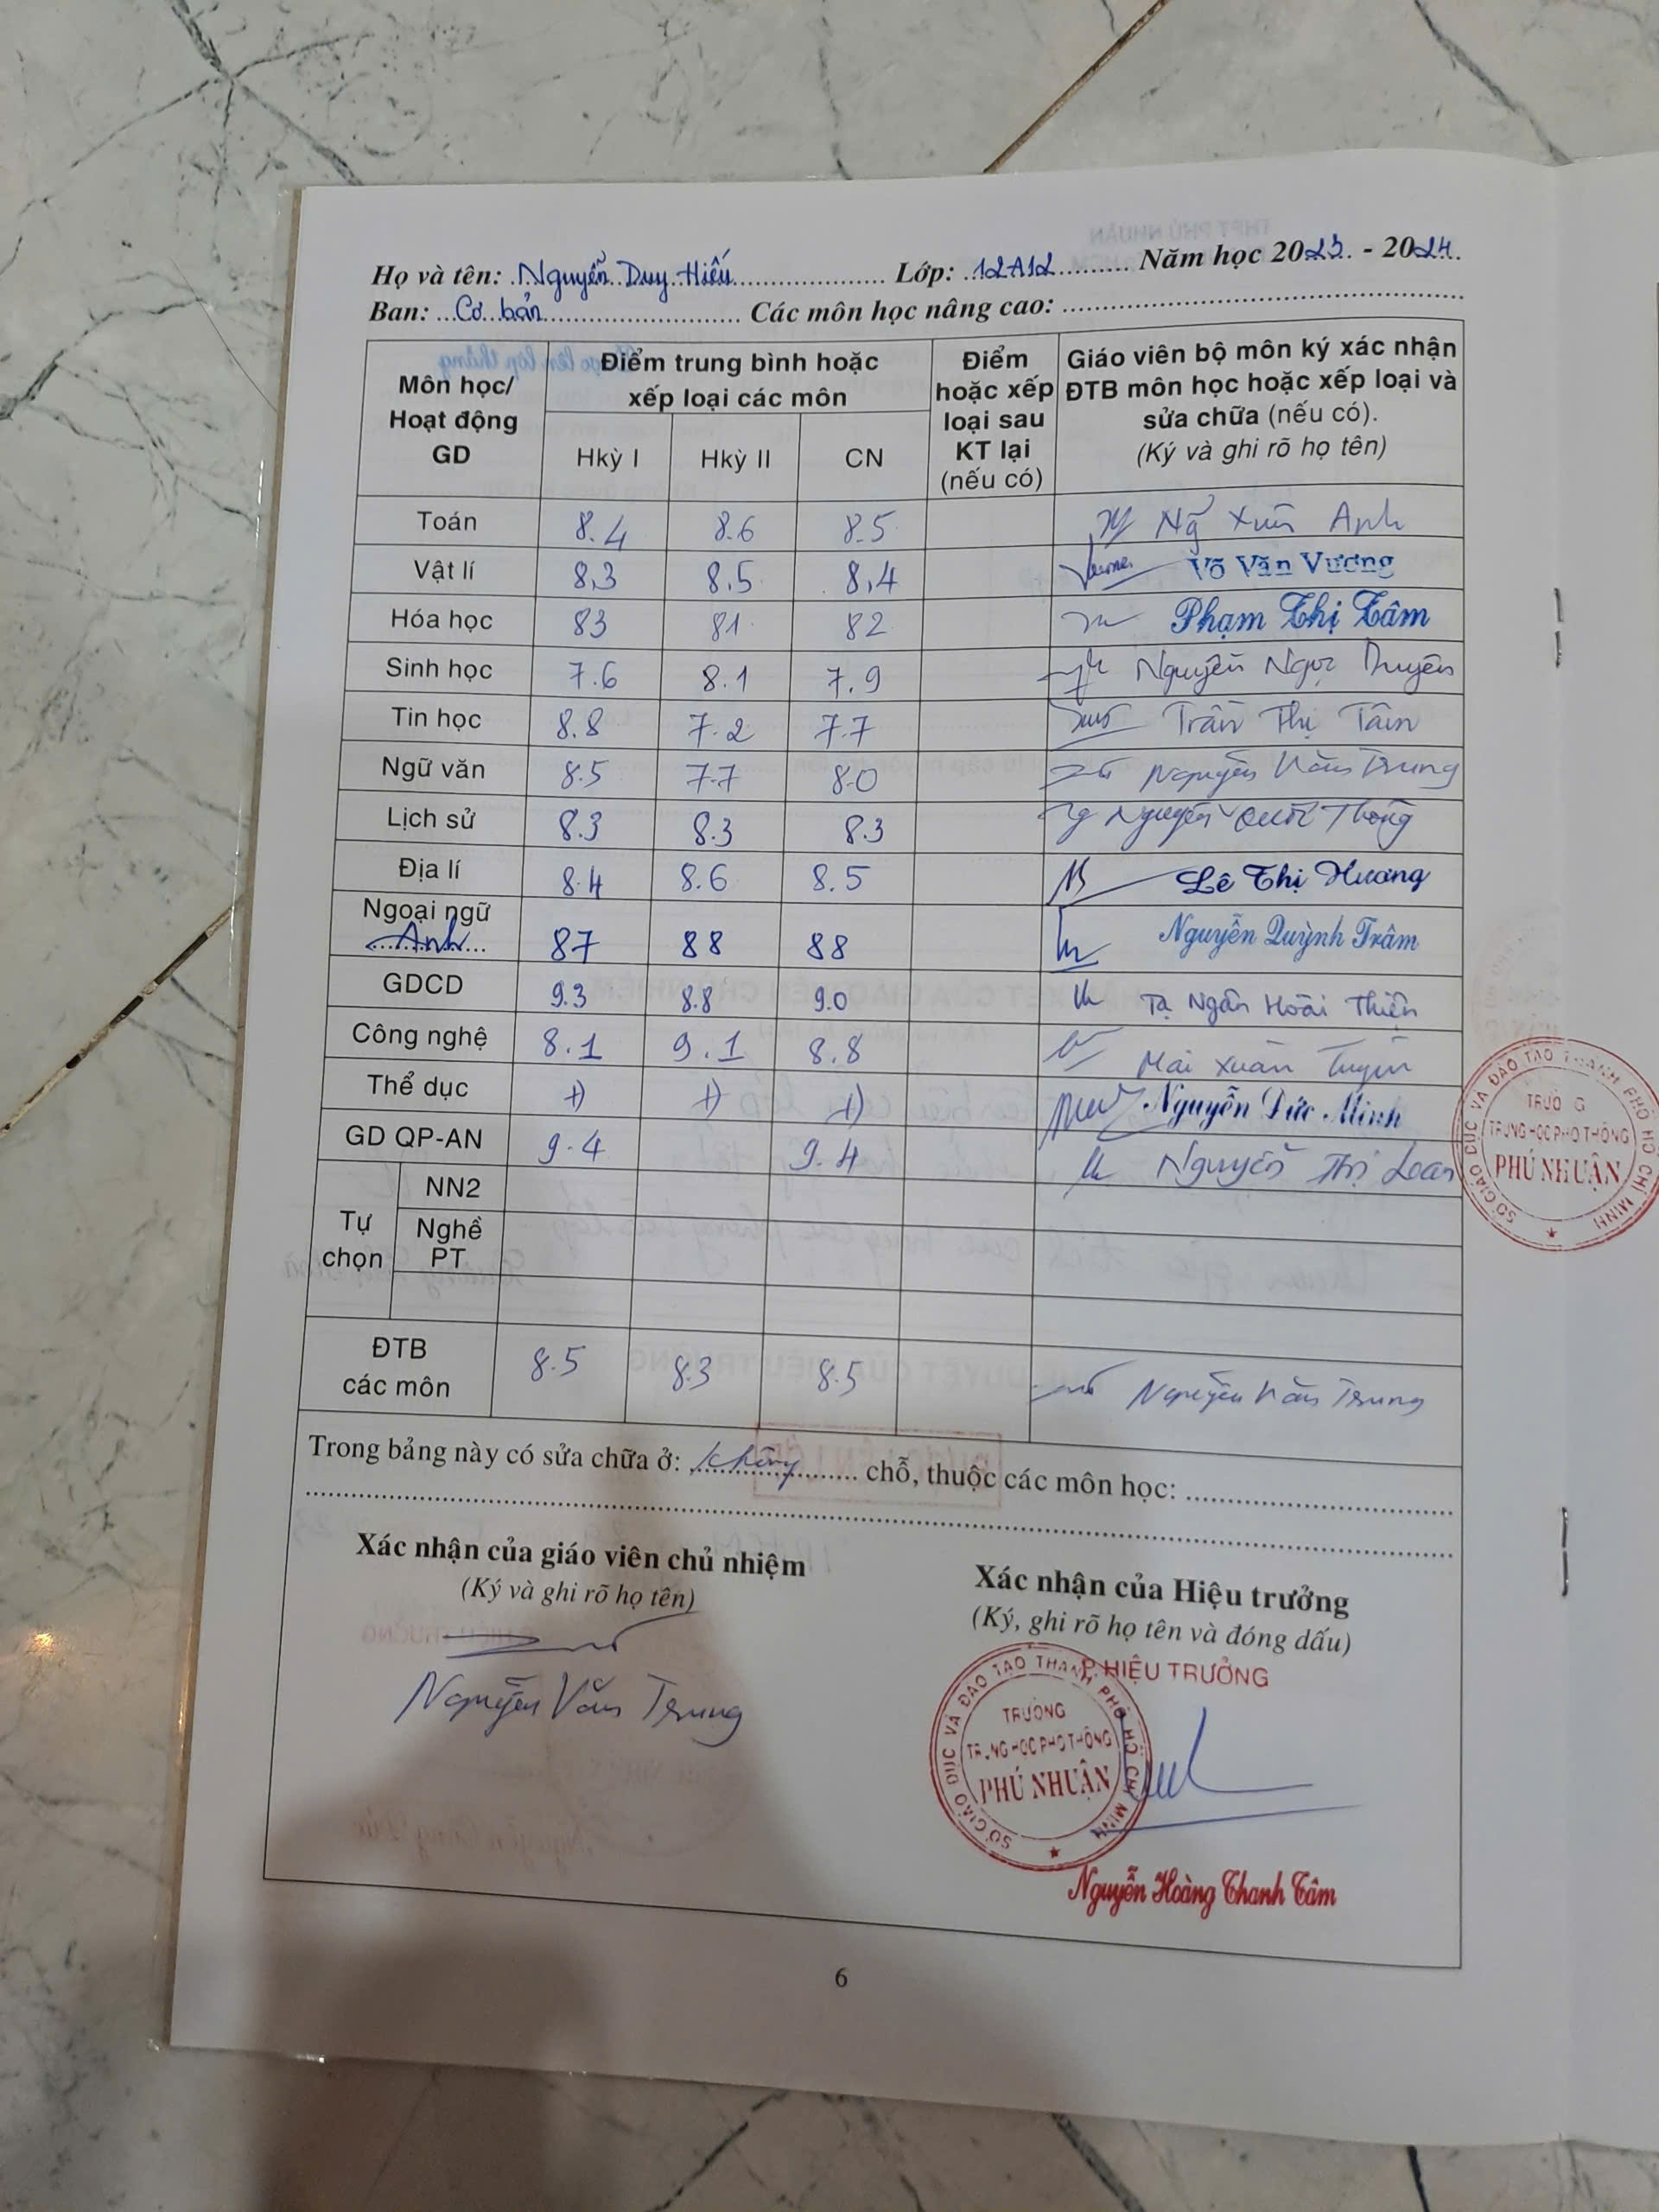 Họ và tên: Nguyễn Duy Hiếu Lớp: 12A12 Năm học 2023 - 2024
Ban: Cơ bản Các môn học nâng cao:
Môn học/ Hoạt động GD Điểm trung bình hoặc xếp loại các môn Điểm hoặc xếp loại sau KT lại (nếu có) Giáo viên bộ môn ký xác nhận ĐTB môn học hoặc xếp loại và sửa chữa (nếu có). (Ký và ghi rõ họ tên)
Hkỳ I Hkỳ II CN
Toán 8.4 8.6 8.5 Xuân Anh
Vật lí 8,3 8,5 8,4 Võ Văn Vương
Hóa học 83 81 82 Phạm Thị Tâm
Sinh học 7.6 8.1 7.9 Nguyễn Ngọc
Tin học 8.8 7.2 7.7 Trần Thị Tâm
Ngữ văn 8.5 7.7 8.0 Nguyễn Văn Trung
Lịch sử 8.3 8.3 8.3 Nguyễn Quốc Thông
Địa lí 8.4 8.6 8.5 Lê Thị Hương
Ngoại ngữ
Anh 87 88 88 Nguyễn Quỳnh Trâm
GDCD 9.3 8.8 9.0 Tạ Ngân Hoài Thiên
Công nghệ 8.1 9.1 8.8 Mai Xuân
Thể dục Nguyễn Đức Minh
GD QP-AN 9.4 9.4 Nguyễn Thị Loan
Tự chọn
NN2
Nghề PT
ĐTB các môn 8.5 8.3 8.5 Nguyễn Văn Trung
Trong bảng này có sửa chữa ở: không chỗ, thuộc các môn học:
Xác nhận của giáo viên chủ nhiệm
(Ký và ghi rõ họ tên)
Nguyễn Văn Trung
Xác nhận của Hiệu trưởng
(Ký, ghi rõ họ tên và đóng dấu)
P.HIỆU TRƯỞNG
SỞ GIÁO DỤC VÀ ĐÀO TẠO THÀNH PHỐ HỒ CHÍ MINH
TRƯỜNG
TRUNG HỌC PHỔ THÔNG
PHÚ NHUẬN
Nguyễn Hoàng Thanh Tâm
SỞ GIÁO DỤC VÀ ĐÀO TẠO THÀNH PHỐ HỒ CHÍ MINH
TRƯỜNG
TRUNG HỌC PHỔ THÔNG
PHÚ NHUẬN
6